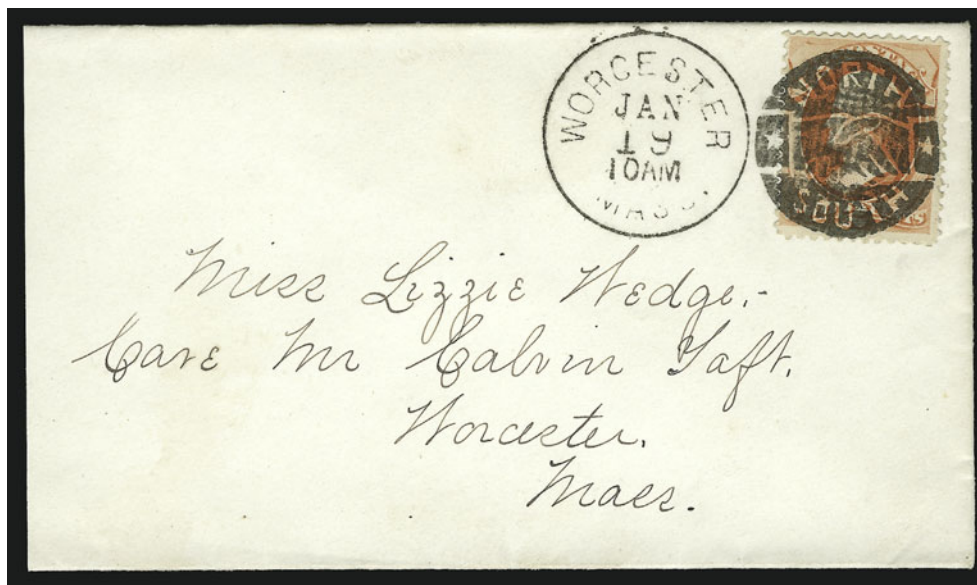 WORCESTER
JAN
19
10AM
MASS.
NORTH
SOUTH
Miss Lizzie Wedge.-
Care Mr Calvin Taft.
Worcester.
Mass.